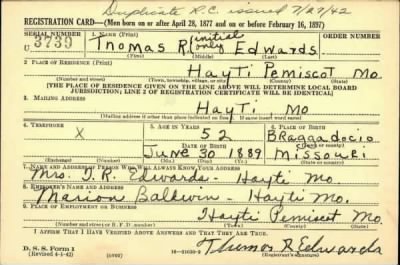 Duplicate R.C. issued 7/27/42
REGISTRATION CARD—(Men born on or after April 28, 1877 and on or before February 16, 1897)
SERIAL NUMBER
1. NAME (Print)
U 3739
Thomas R (initial only) Edwards
(First) (Middle) (Last)
2. PLACE OF RESIDENCE (Print)
Hayti Pemiscot Mo
(Number and street) (Town, township, village, or city) (County) (State)
[THE PLACE OF RESIDENCE GIVEN ON THE LINE ABOVE WILL DETERMINE LOCAL BOARD
JURISDICTION; LINE 2 OF REGISTRATION CERTIFICATE WILL BE IDENTICAL]
3. MAILING ADDRESS
Hayti Mo
(Mailing address if other than place indicated on line 2. If same insert word same)
4. TELEPHONE
5. AGE IN YEARS
6. PLACE OF BIRTH
X
52
Braggadocio
DATE OF BIRTH
(Town or county)
June 30 1889
Missouri
(Exchange) (Number) (Mo.) (Day) (Yr.) (State or country)
7. NAME AND ADDRESS OF PERSON WHO WILL ALWAYS KNOW YOUR ADDRESS
Mrs. T.R. Edwards - Hayti Mo.
8. EMPLOYER'S NAME AND ADDRESS
Marion Baldwin - Hayti Mo.
9. PLACE OF EMPLOYMENT OR BUSINESS
Hayti Pemiscot Mo.
(Number and street or R. F. D. number) (Town) (County) (State)
I AFFIRM THAT I HAVE VERIFIED ABOVE ANSWERS AND THAT THEY ARE TRUE.
D. S. S. Form 1
(Revised 4-1-42) (over) 16—21630-2
Thomas R Edwards
(Registrant's signature)